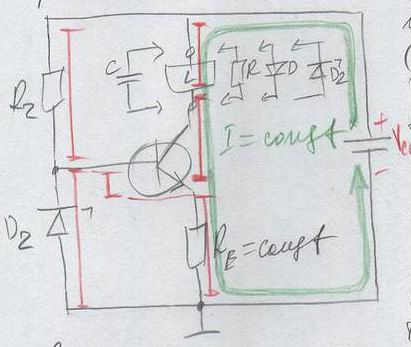 C
L
R
D
D2
R2
I = const
+
Vcc
-
D2
RE = const